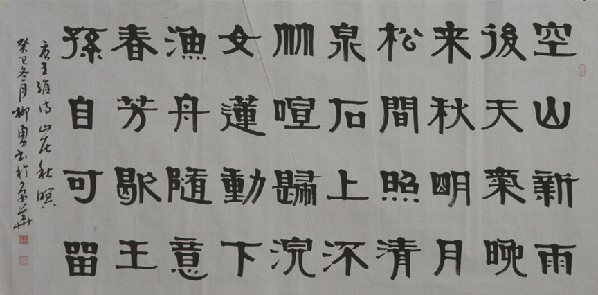 空山新雨
後天氣晚
来秋明月
松間照清
泉石上流
竹喧歸浣
女蓮動下
漁舟隨意
春芳歇王
孫自可留
王維詩山居秋暝
癸巳冬月柳勇书於京華